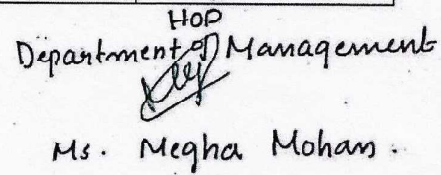 HOD
Department of Management
Ms. Megha Mohan.